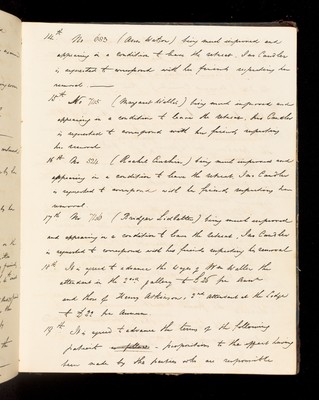 14th No (Ann Watson) being much improved and
appearing in a condition to leave the retreat. Jas Candler
is requested to correspond with her friends respecting her
removal.
15th No (Margaret Wallis) being much improved and
appearing in a condition to leave the retreat, Jas Candler
is requested to correspond with her friends respecting
her removal
16th No (Rachel ) being much improved and
appearing in a condition to leave the retreat Jas Candler
is requested to correspond with her friends respecting her
removal.
17th No (Bridget ) being much improved
and appearing in a condition to leave the retreat. Jas Candler
is requested to correspond with her friends respecting her removal
18th It is agreed to advance the wages of Waller the
attendant in the 2nd gallery to £25 per Ann
and those of Henry Atkinson, 2nd attendant at the Lodge
to £20 per Annum
19th It is agreed to advance the terms of the following
patients - proportion to the appart having
been made by the parties who are responsible